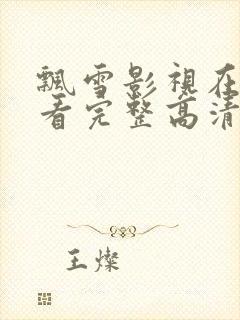 飄雪影視在
看完整高清
王燦